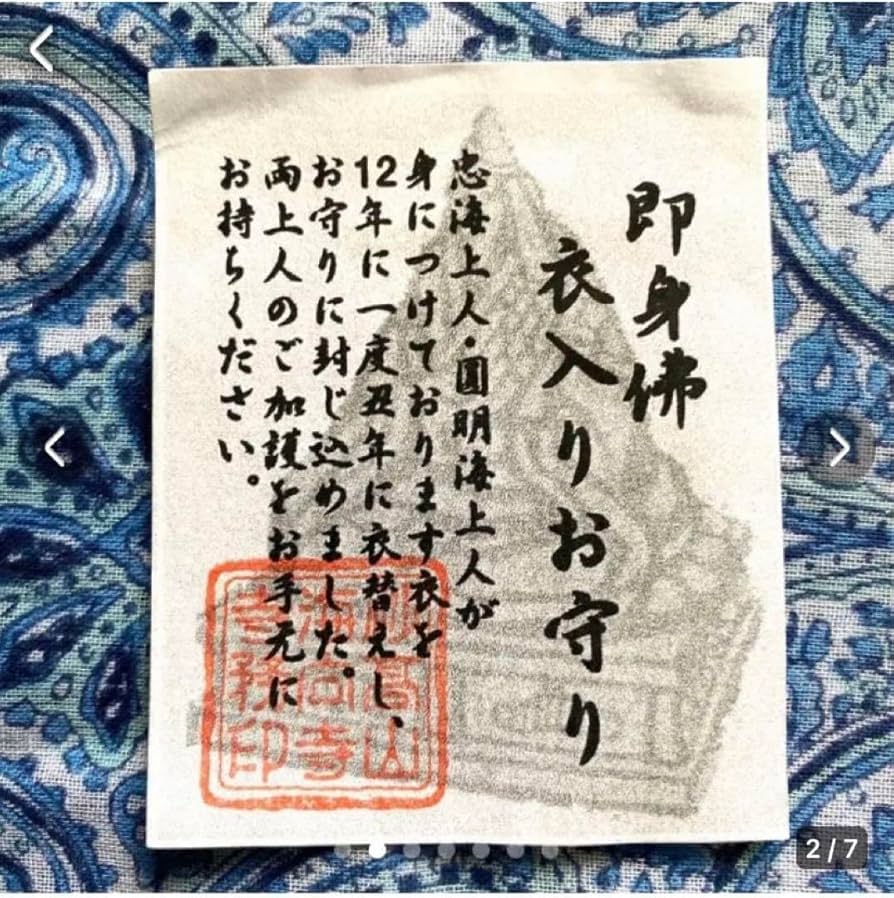 即身佛
衣入りお守り
忠海上人・圓明海上人が
身につけております衣を
12年に一度丑年に衣替えし、
お守りに封じ込めました。
両上人のご加護をお手元に
お持ちください。
高山
海向寺
寺務印
2 / 7